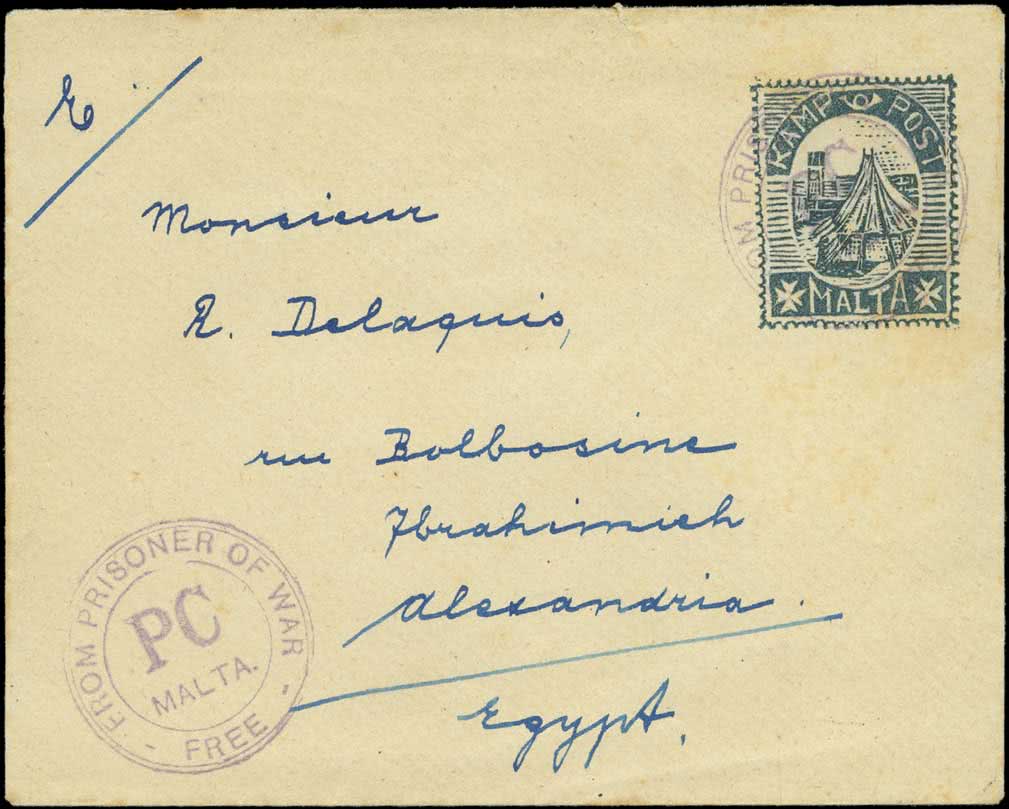 E/
KAMP POST
MALTA
FROM PRIS
PC
Monsieur
R. Delaquis,
rue Bolbosine
Ibrahimieh
Alexandria.
Egypt.
FROM PRISONER OF WAR
PC
MALTA.
- FREE -